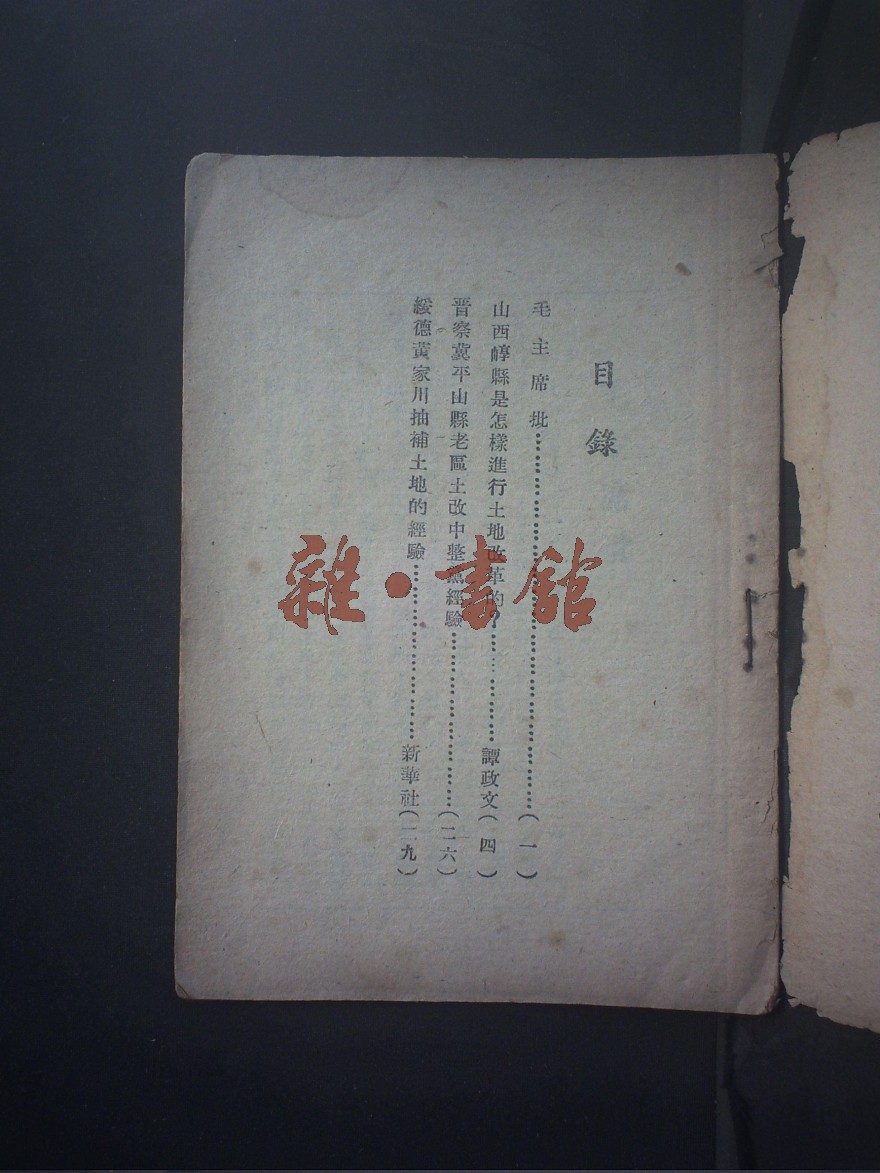 目錄
毛主席批…………………………………………(一)
山西崞縣是怎樣進行土地改革的?…………譚政文(四)
晋察冀平山縣老區土改中整黨經驗…………………(二六)
綏德黃家川抽補土地的經驗…………………新華社(二九)
雜·書舘